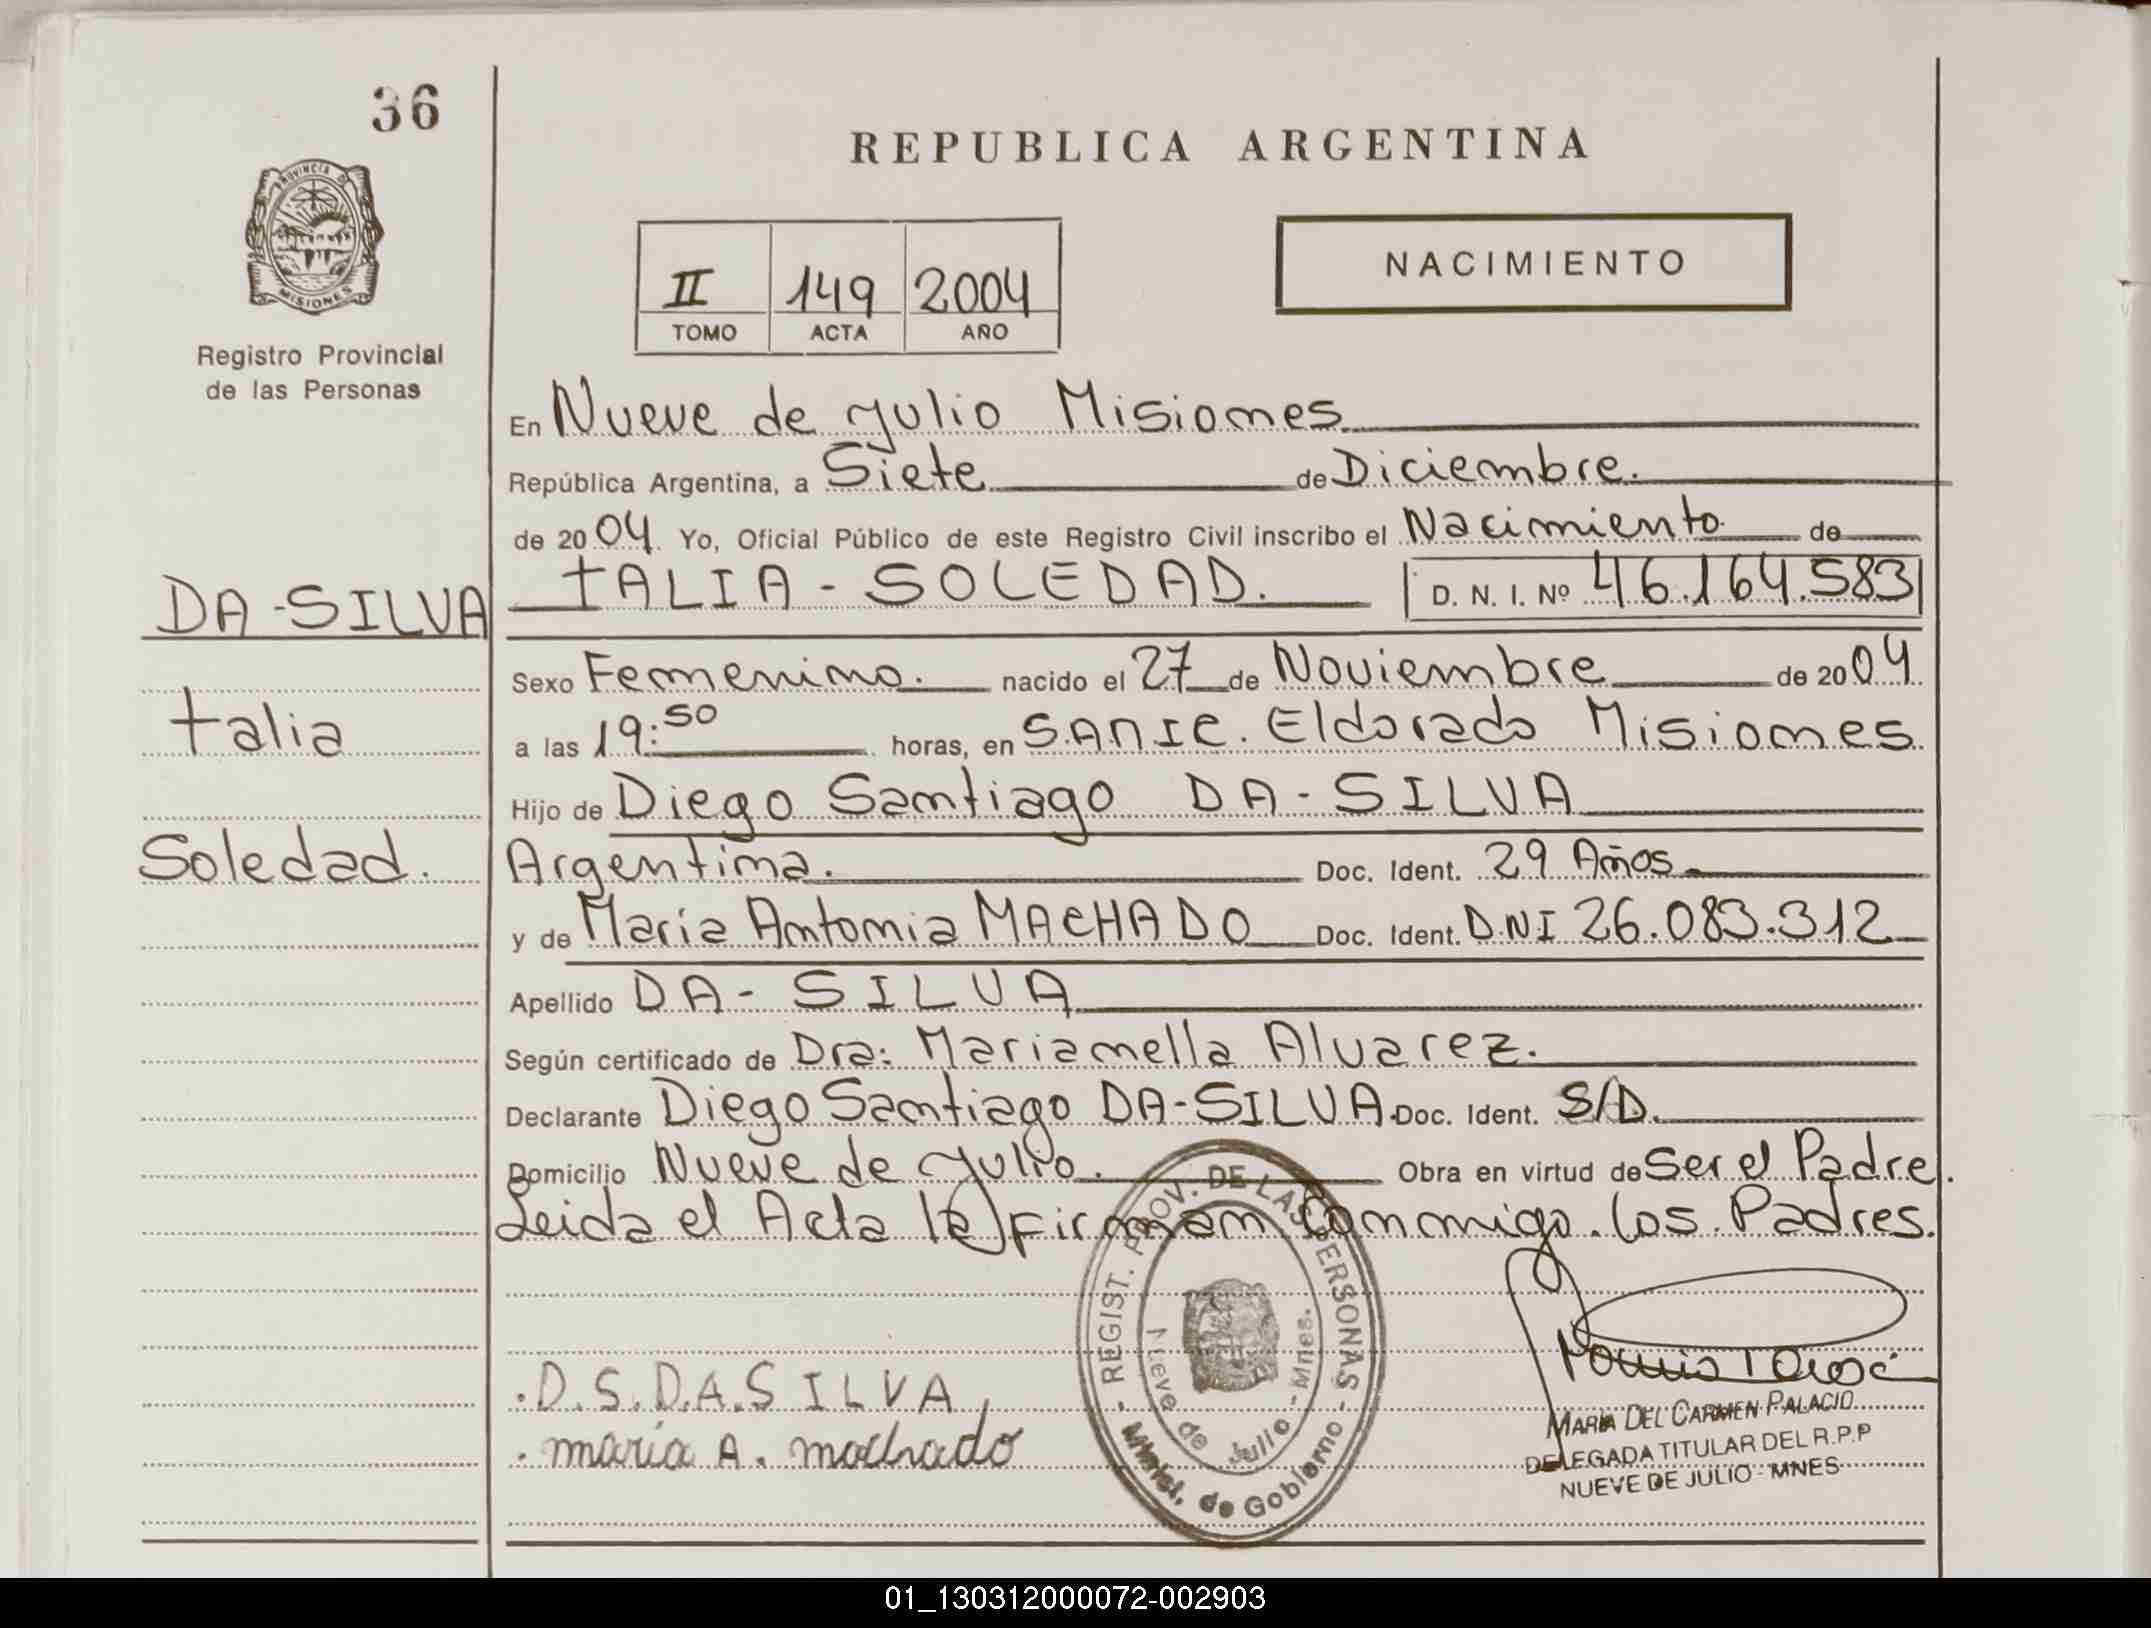 36
PROVINCIA DE
MISIONES
Registro Provincial
de las Personas
REPUBLICA ARGENTINA
II 149 2004
TOMO ACTA AÑO
NACIMIENTO
En Nueve de Julio Misiones
República Argentina, a Siete de Diciembre.
de 2004. Yo, Oficial Público de este Registro Civil inscribo el Nacimiento de
DA-SILVA
Talia
Soledad.
TALIA - SOLEDAD. D. N. I. Nº 46.164.583
Sexo Femenino. nacido el 27 de Noviembre de 2004
a las 19:50 horas, en S.A.M.I.C. Eldorado Misiones
Hijo de Diego Santiago DA-SILVA
Argentina. Doc. Ident. 29 Años
y de Maria Antonia MACHADO Doc. Ident. D.N.I 26.083.312
Apellido DA-SILVA
Según certificado de Dra: Marianella Alvarez.
Declarante Diego Santiago DA-SILVA. Doc. Ident. S/D.
Domicilio Nueve de Julio. Obra en virtud de Ser el Padre.
Leida el Acta la firman Conmigo. los Padres.
.D.S.D.A.SILVA
. maria A. machado
- REGIST. PROV. DE LAS PERSONAS -
Minist. de Gobierno
Nueve de Julio - Mnes.
MARIA DEL CARMEN PALACIO
DELEGADA TITULAR DEL R.P.P
NUEVE DE JULIO - MNES
01_130312000072-002903